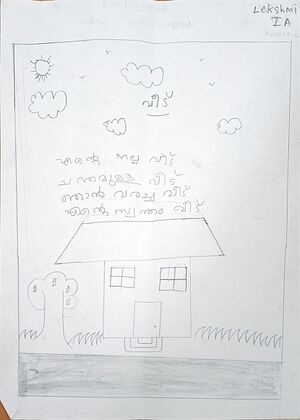 Lekshmi
I A
വീട്
എന്റെ നല്ല വീട്
ചന്തമുള്ള വീട്
ഞാൻ വരച്ച വീട്
എന്റെ സ്വന്തം വീട്